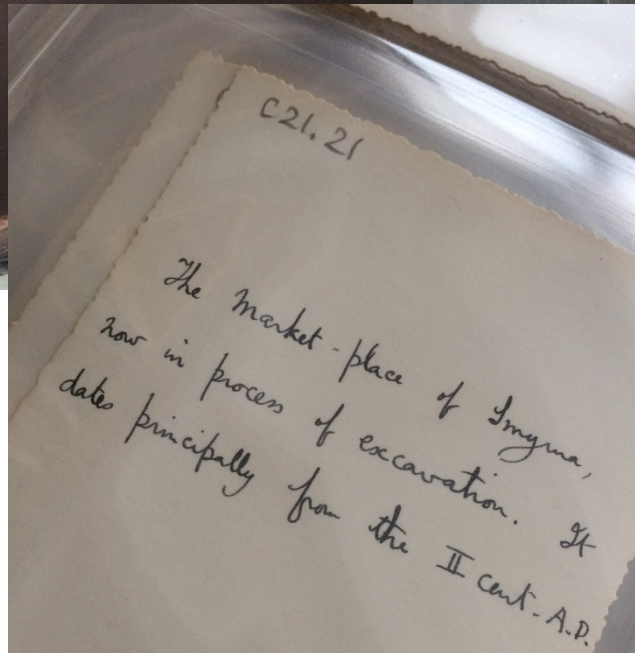 C21.21
The market-place of Smyrna,
now in process of excavation. It
dates principally from the II cent. A.D.